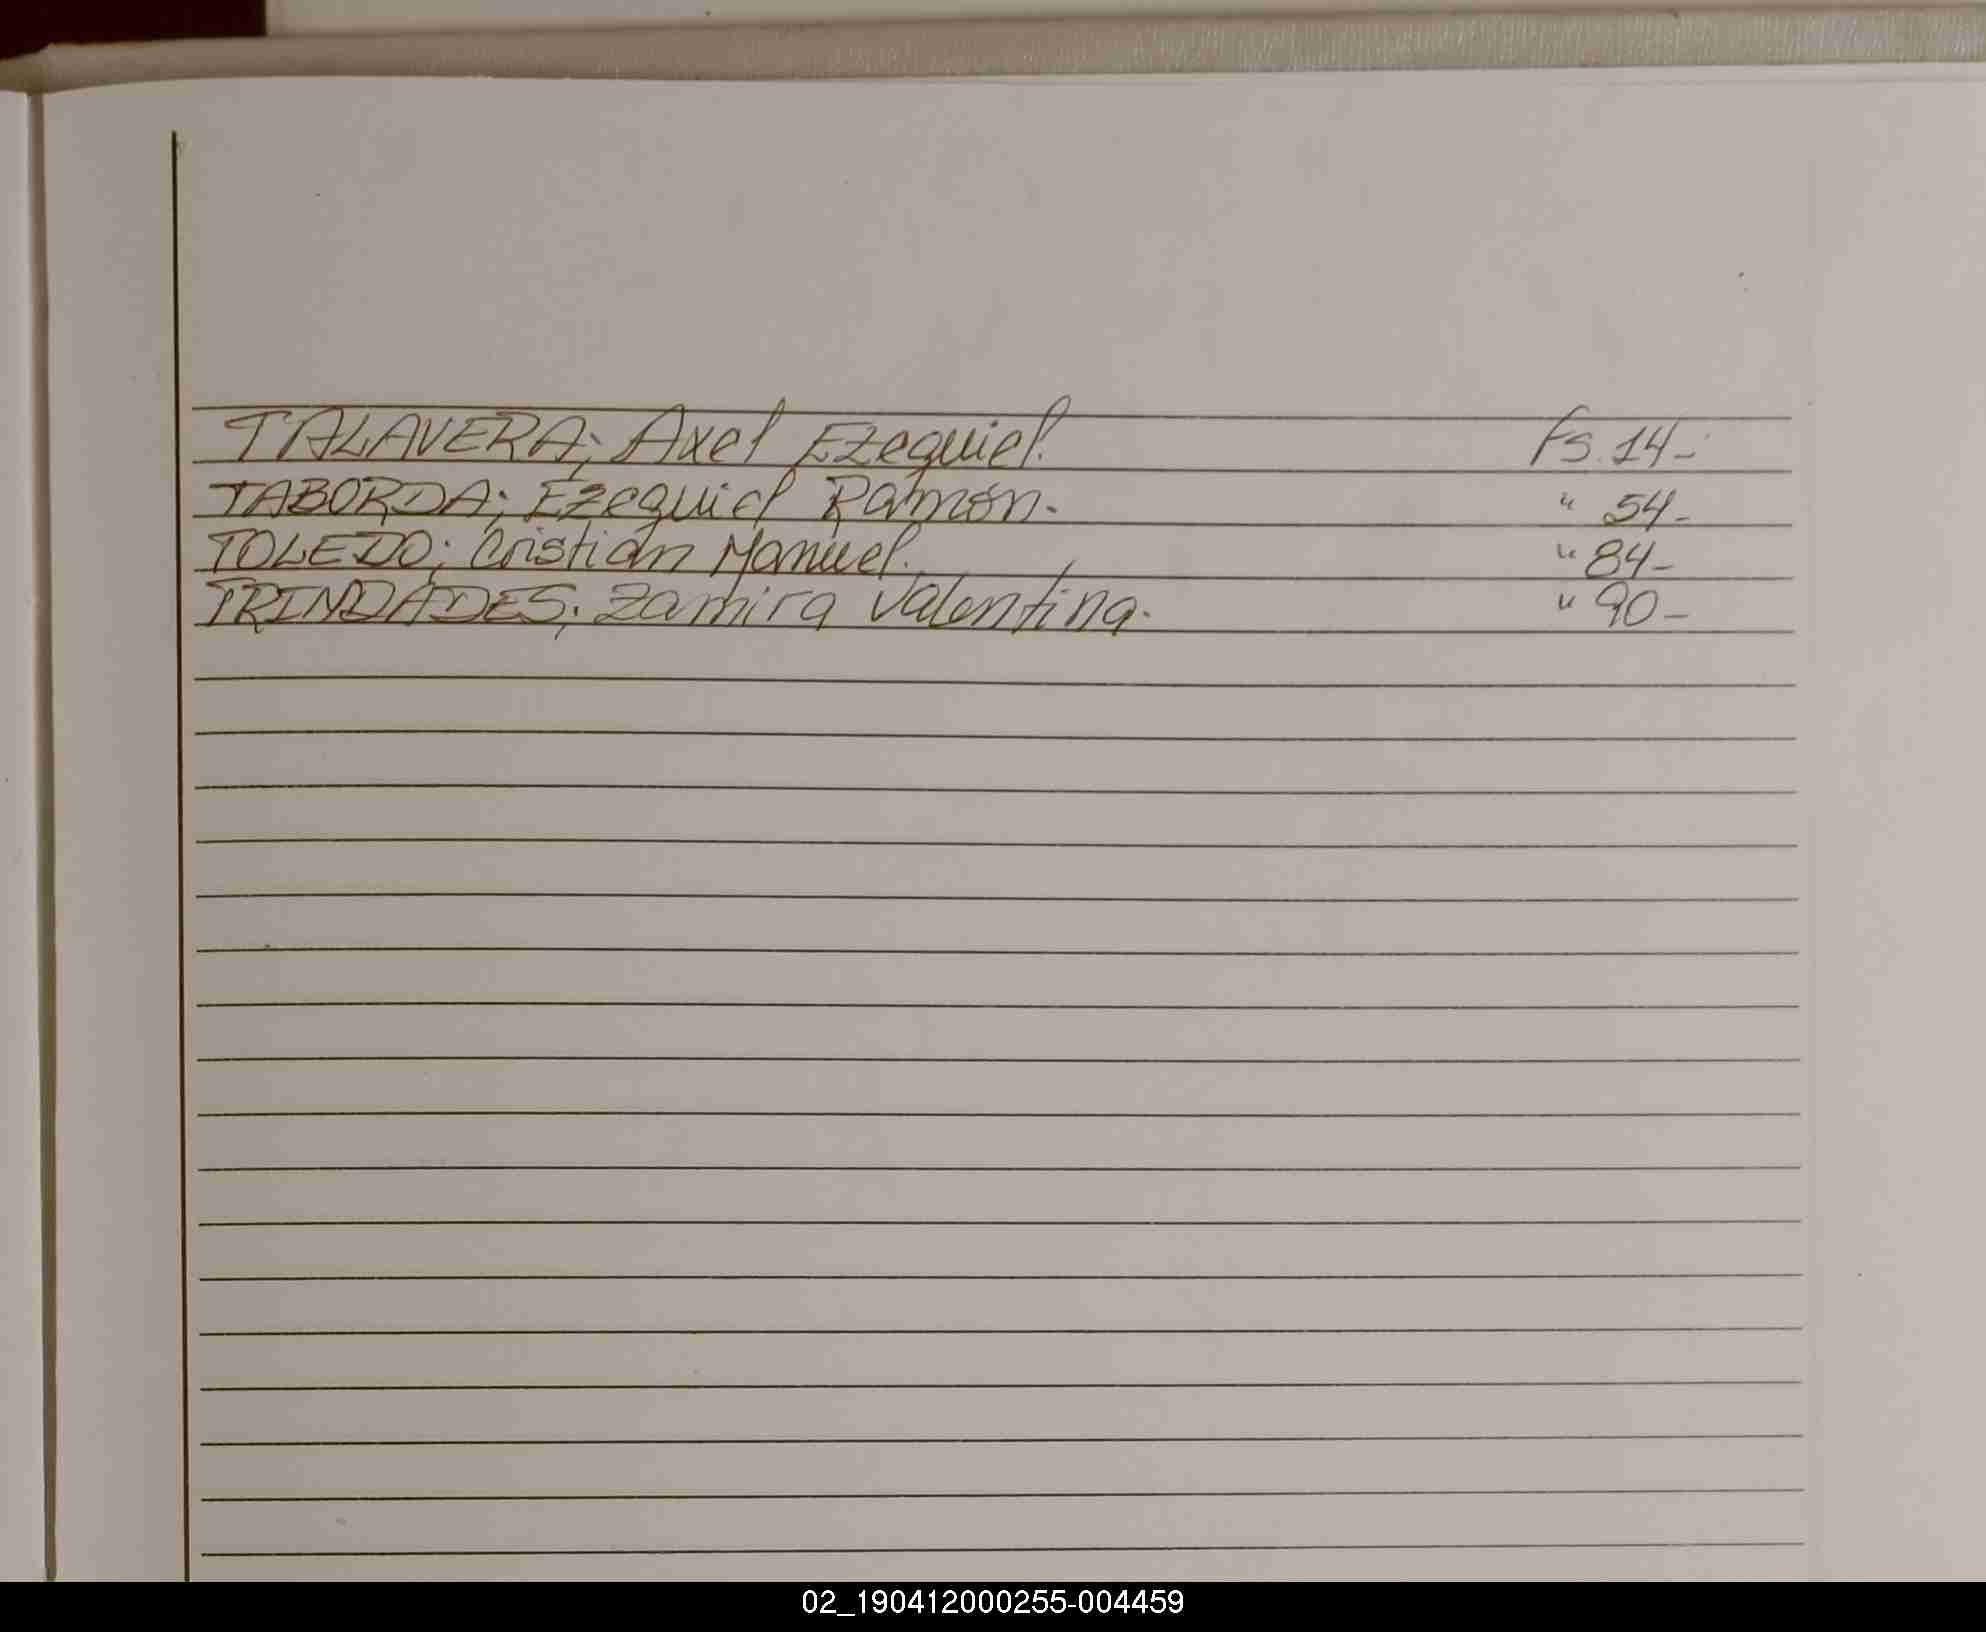 TALAVERA; Axel Ezequiel. Fs. 14-
TABORDA; Ezequiel Ramón. " 54-
TOLEDO; Cristian Manuel. " 84-
TRINDADES; Zamira Valentina. " 90-
02_190412000255-004459